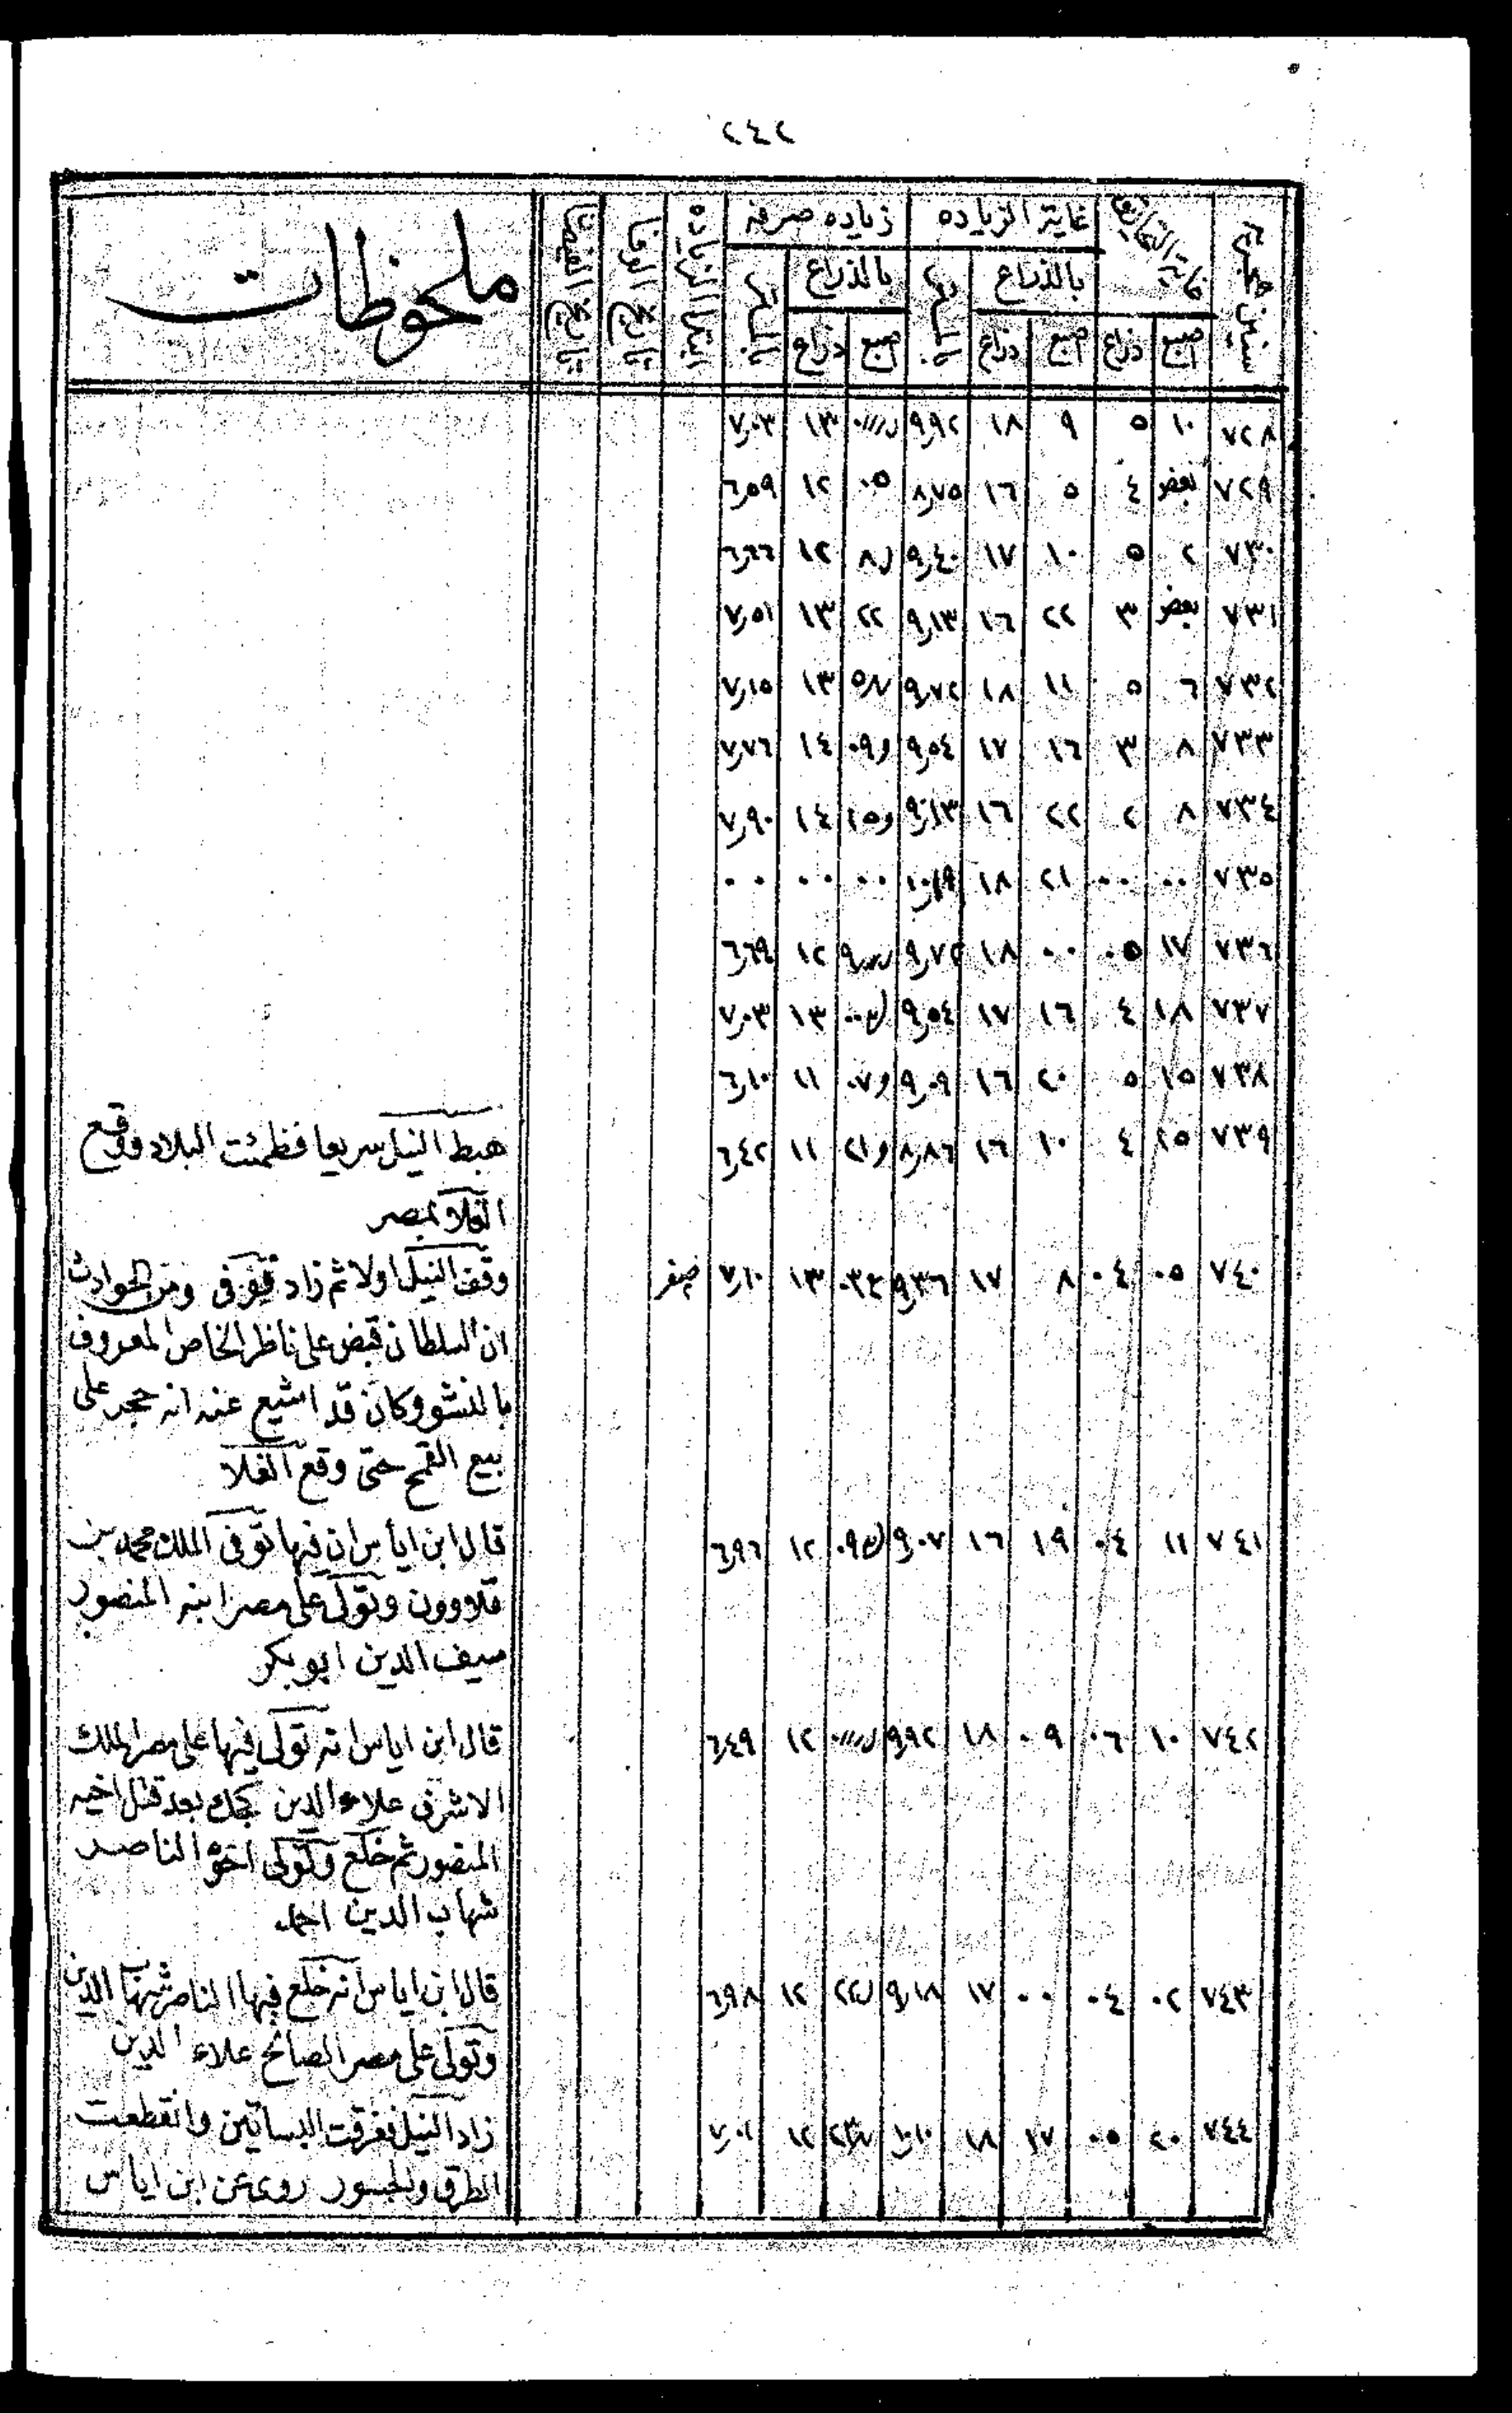 ٢٤٢
سنين هجرية | غاية التحاريق | غاية الزياده | زياده صرفه | ابتدا الزياده | تاريخ الوفا | تاريخ الفيضان | ملحوظات
بالذراع | بالذراع
اصبع | ذراع | اصبع | ذراع | اصبع | ذراع
٧٢٨ | ١٠ | ٥ | ٩ | ١٨ | ٩,٩٢ | | ١٣ | ٧,٠٣
٧٢٩ | بعض | ٤ | ٥ | ١٦ | ٨,٧٥ | ٠٥ | ١٢ | ٦,٥٩
٧٣٠ | ٢ | ٥ | ١٠ | ١٧ | ٩,٤٠ | ٨ | ١٢ | ٦,٦٦
٧٣١ | بعض | ٣ | ٢٢ | ١٦ | ٩,١٣ | ٢٢ | ١٣ | ٧,٥١
٧٣٢ | ٦ | ٥ | ١١ | ١٨ | ٩,٧٢ | | ١٣ | ٧,١٥
٧٣٣ | ٨ | ٣ | ١٦ | ١٧ | ٩,٥٤ | ٠٩ | ١٤ | ٧,٧٦
٧٣٤ | ٨ | ٢ | ٢٢ | ١٦ | ٩,١٣ | | ١٤ | ٧,٩٠
٧٣٥ | ٠٠ | ٠٠ | ٢١ | ١٨ | ١٠,١٩ | ٠٠ | ٠٠ | ٠٠
٧٣٦ | ١٧ | ٠٥ | ٠٠ | ١٨ | ٩,٧٢ | | ١٢ | ٦,٦٩
٧٣٧ | ١٨ | ٤ | ١٦ | ١٧ | ٩,٥٤ | | ١٣ | ٧,٠٣
٧٣٨ | ١٥ | ٥ | ٢٠ | ١٦ | ٩,٠٩ | ٠٧ | ١١ | ٦,١٠
٧٣٩ | ١٥ | ٤ | ١٠ | ١٦ | ٨,٨٦ | | ١١ | ٦,٤٢ | هبط النيل سريعا فظمئت البلاد ووقع
الغلا بمصر
٧٤٠ | ٠٥ | ٠٤ | ٨ | ١٧ | ٩,٣٦ | | ١٣ | ٧,١٠ | صفر | وقف النيل اولا ثم زاد فيوفى ومن الحوادث
ان السلطان قبض على ناظر الخاص المعروف
بالنشو وكان قد اشيع عنه انه حجر على
بيع القمح حتى وقع الغلا
٧٤١ | ١١ | ٠٤ | ١٩ | ١٦ | ٩,٠٧ | | ١٢ | ٦,٩٦ | قال ابن اياس ان فيها توفى الملك محمد بن
قلاوون وتولى على مصر ابنه المنصور
سيف الدين ابو بكر
٧٤٢ | ١٠ | ٠٦ | ٠٩ | ١٨ | ٩,٩٢ | | ١٢ | ٦,٤٩ | قال ابن اياس انه تولى فيها على مصر الملك
الاشرف علاء الدين كجك بعد قتل اخيه
المنصور ثم خلع وتولى اخوه الناصر
شهاب الدين احمد
٧٤٣ | ٠٢ | ٠٤ | ٠٠ | ١٧ | ٩,١٨ | | ١٢ | ٦,٩٨ | قال ابن اياس انه خلع فيها الناصر شهاب الدين
وتولى على مصر الصالح علاء الدين
٧٤٤ | ٢٠ | ٠٥ | ١٧ | ١٨ | ١٠,١٠ | | ١٢ | ٧,٠١ | زاد النيل فغرقت البساتين وانقطعت
الطرق والجسور روى عن ابن اياس